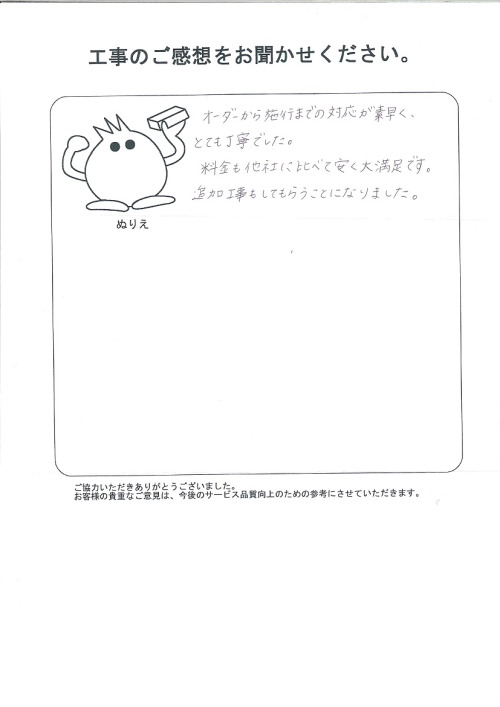 工事のご感想をお聞かせください。
オーダーから施行までの対応が素早く、
とても丁寧でした。
料金も他社に比べて安く大満足です。
追加工事もしてもらうことになりました。
ぬりえ
ご協力いただきありがとうございました。
お客様の貴重なご意見は、今後のサービス品質向上のための参考にさせていただきます。